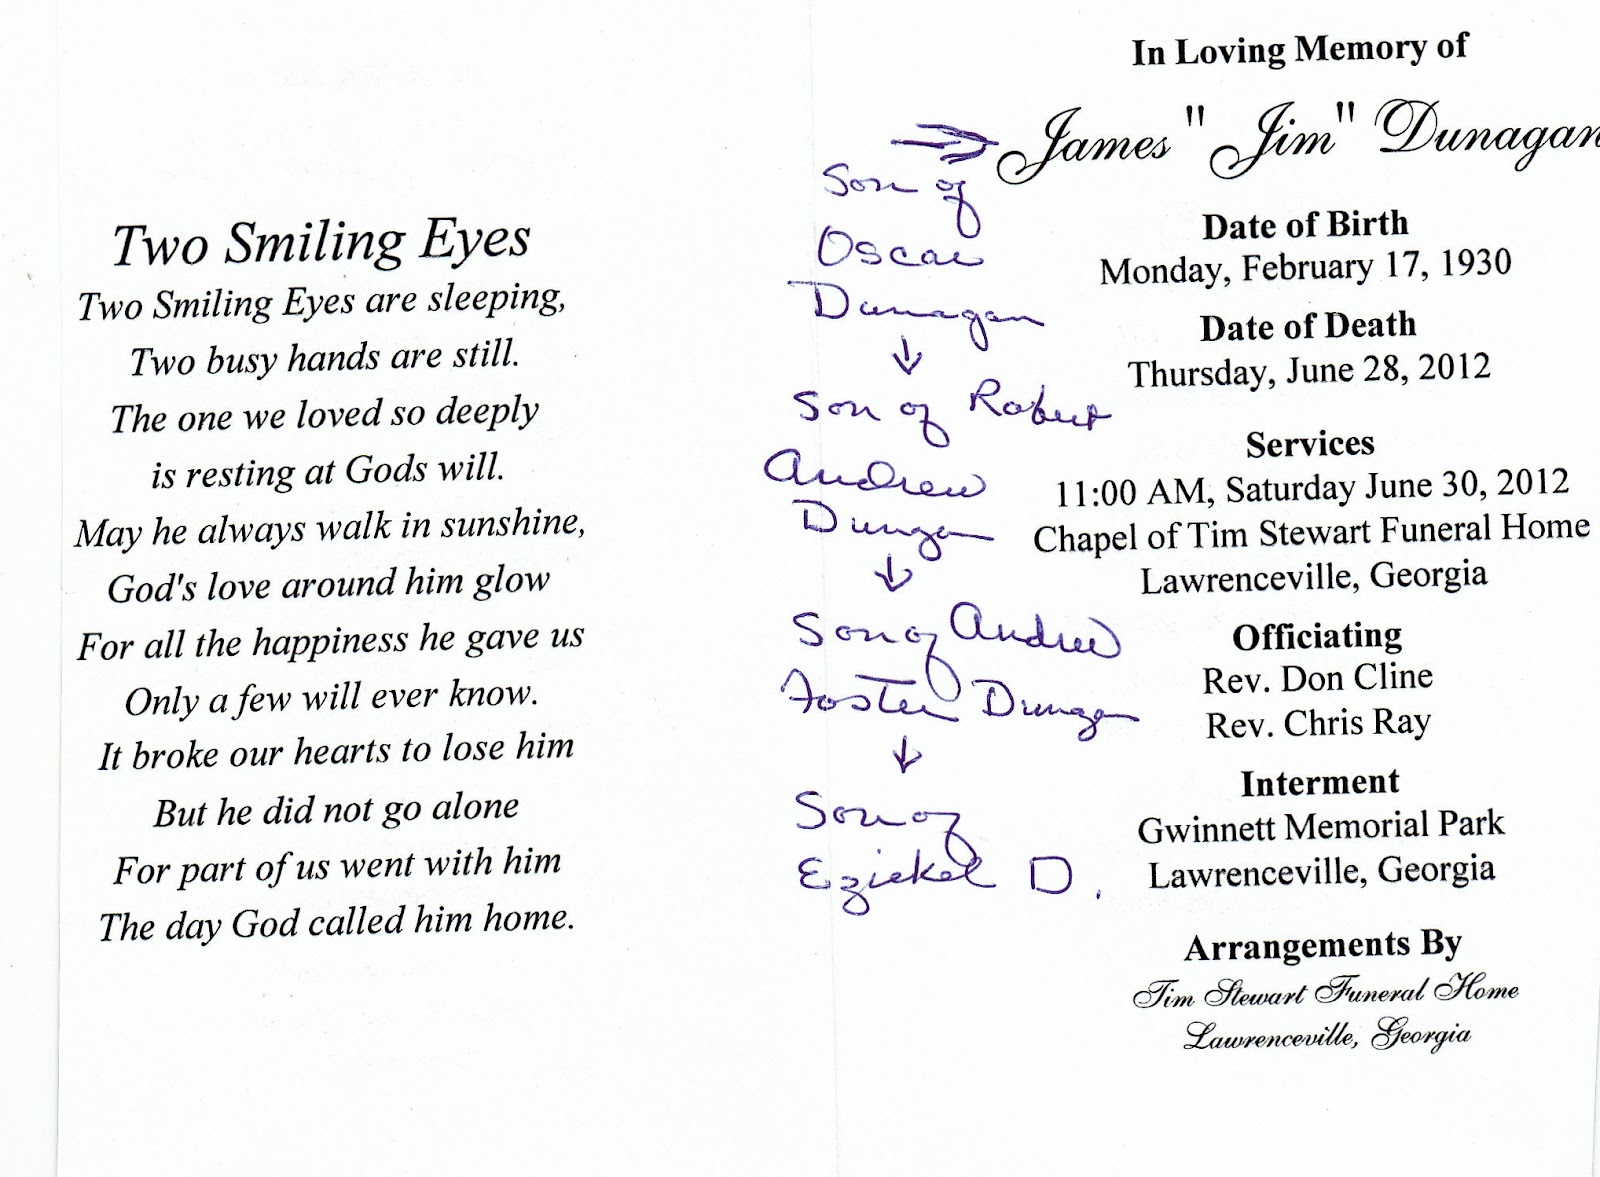 Two Smiling Eyes
Two Smiling Eyes are sleeping,
Two busy hands are still.
The one we loved so deeply
is resting at Gods will.
May he always walk in sunshine,
God's love around him glow
For all the happiness he gave us
Only a few will ever know.
It broke our hearts to lose him
But he did not go alone
For part of us went with him
The day God called him home.
Son of
Oscar
Dunagan
Son of Robert
Andrew
Dungan
Son of Andrew
Foster Dungan
Son of
Eziekel D.
In Loving Memory of
James "Jim" Dunagan
Date of Birth
Monday, February 17, 1930
Date of Death
Thursday, June 28, 2012
Services
11:00 AM, Saturday June 30, 2012
Chapel of Tim Stewart Funeral Home
Lawrenceville, Georgia
Officiating
Rev. Don Cline
Rev. Chris Ray
Interment
Gwinnett Memorial Park
Lawrenceville, Georgia
Arrangements By
Tim Stewart Funeral Home
Lawrenceville, Georgia